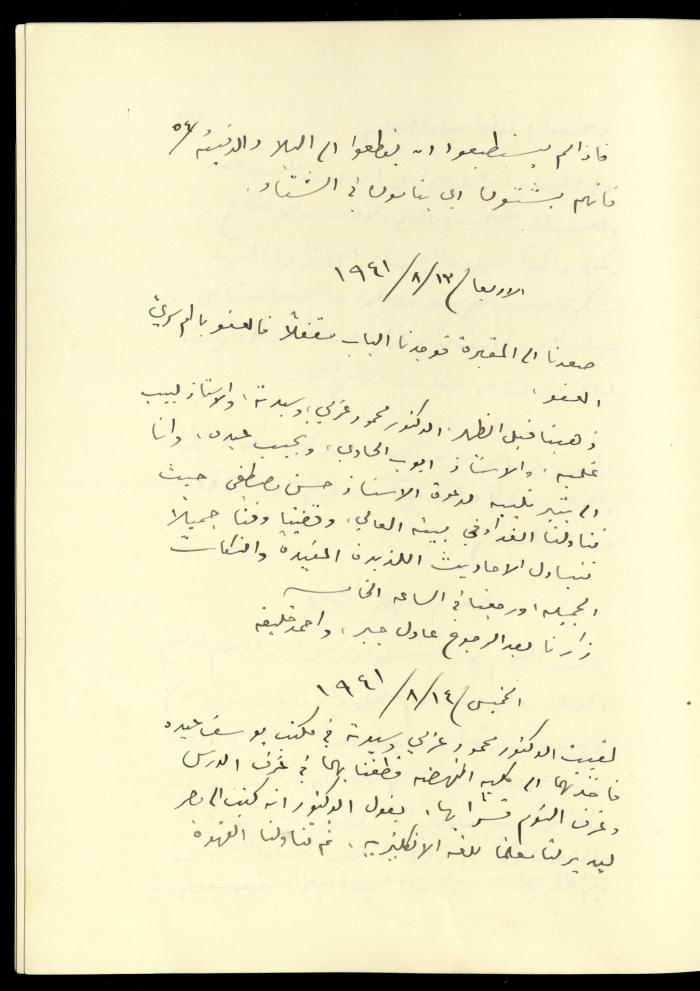 ٥٤/
فاذا لم يستطيعوا ان يقطعوا الى البلا والدفيئة
فانهم يشتون اي ينامون في الشتاء.
الاربعاء ١٣/ ٨/ ١٩٤١
صعدنا الى المقبرة فوجدنا الباب مقفلاً فالعفو يا ام سريّ
العفو.
ذهبنا قبل الظهر، الدكتور محمود عزمي، وسيدته، والاستاذ لبيب
غلميه، والاستاذ ايوب الحادي، ونجيب عبده، وانا
الى بتير تلبيه لدعوة الاستاذ حسن مصطفى حيث
تناولنا الغداء في بيته العالي، وقضينا وقتاً جميلاً
نتبادل الاحاديث اللذيذة المفيدة والنكات
الجميله، ورجعنا في الساعه الخامسه
زارنا بعد الرجوع عادل جبر، واحمد خليفه
الخميس ١٤/ ٨/ ١٩٤١
لقيت الدكتور محمود عزمي وسيدته في مكتب يوسف عبده
فاخذتهما الى كليه النهضه فطفنا بهما في غرف الدرس
وغرف النوم فسرّا بها. يقول الدكتور انه كتب الى مصر
ليدبر لنا معلما للغه الانكليزيه، ثم تناولنا القهوة